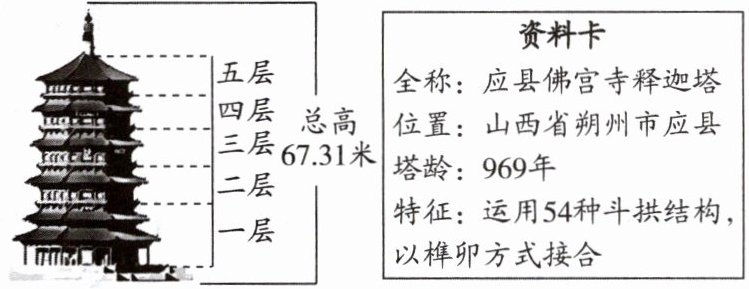 五层
四层
三层
二层
一层
总高
67.31米
资料卡
全称：应县佛宫寺释迦塔
位置：山西省朔州市应县
塔龄：969年
特征：运用54种斗拱结构，
以榫卯方式接合